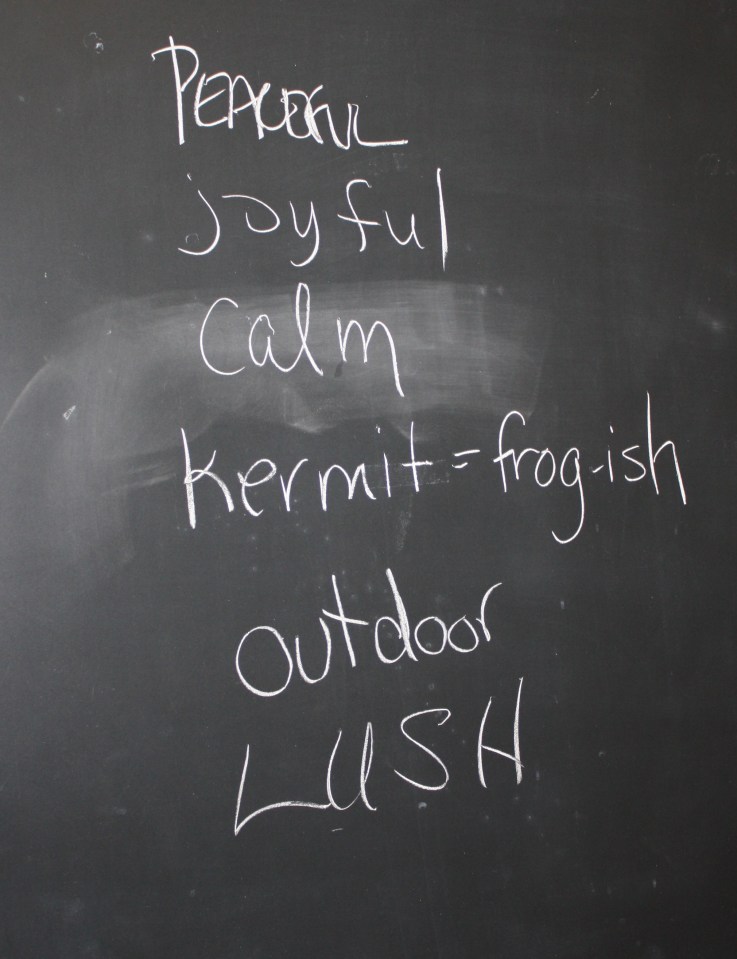 PEACEFUL
joyful
calm
kermit = frog-ish
outdoor
LUSH